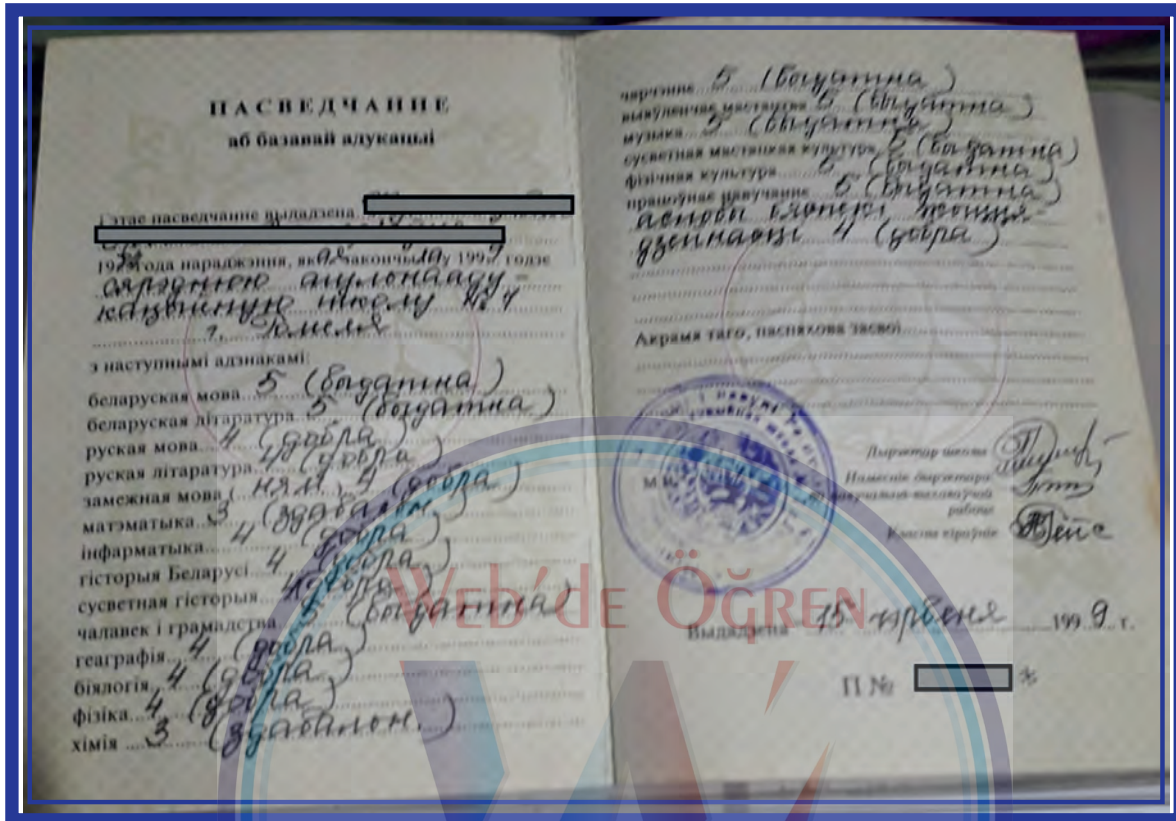 ПАСВЕДЧАННЕ
аб базавай адукацыі
і этае пасведчанне выдадзена
года нараджэння, як закончыла у 199 годзе
сярэднюю агульнааду-
кацыйную школу № 7
г. Гомеля
з наступнымі адзнакамі:
беларуская мова 5 (выдатна)
беларуская літаратура 5 (выдатна)
руская мова 4 (добра)
руская літаратура 4 (добра)
замежная мова ( ням. 4 (добра)
матэматыка 3 (здавальн.)
інфарматыка 4 (добра)
гісторыя Беларусі 4 (добра)
сусветная гісторыя 4 (добра)
чалавек і грамадства 5 (выдатна)
геаграфія 4 (добра)
біялогія 4 (добра)
фізіка 4 (добра)
хімія 3 (здавальн.)
чарчэнне 5 (выдатна)
выяўленчае мастацтва 5 (выдатна)
музыка 5 (выдатна)
сусветная мастацкая культура 5 (выдатна)
фізічная культура 5 (выдатна)
працоўнае навучанне 5 (выдатна)
асновы бяспекі жыцця-
дзейнасці 4 (добра)
Акрамя таго, паспяхова засвоі
Дырэктар школы
Намеснік дырэктара
па вучэбна-выхаваўчай
рабоце
М.П.
Класны кіраўнік
Web'de Öğren
Выдадзена 15 чэрвеня 1999 г.
П №